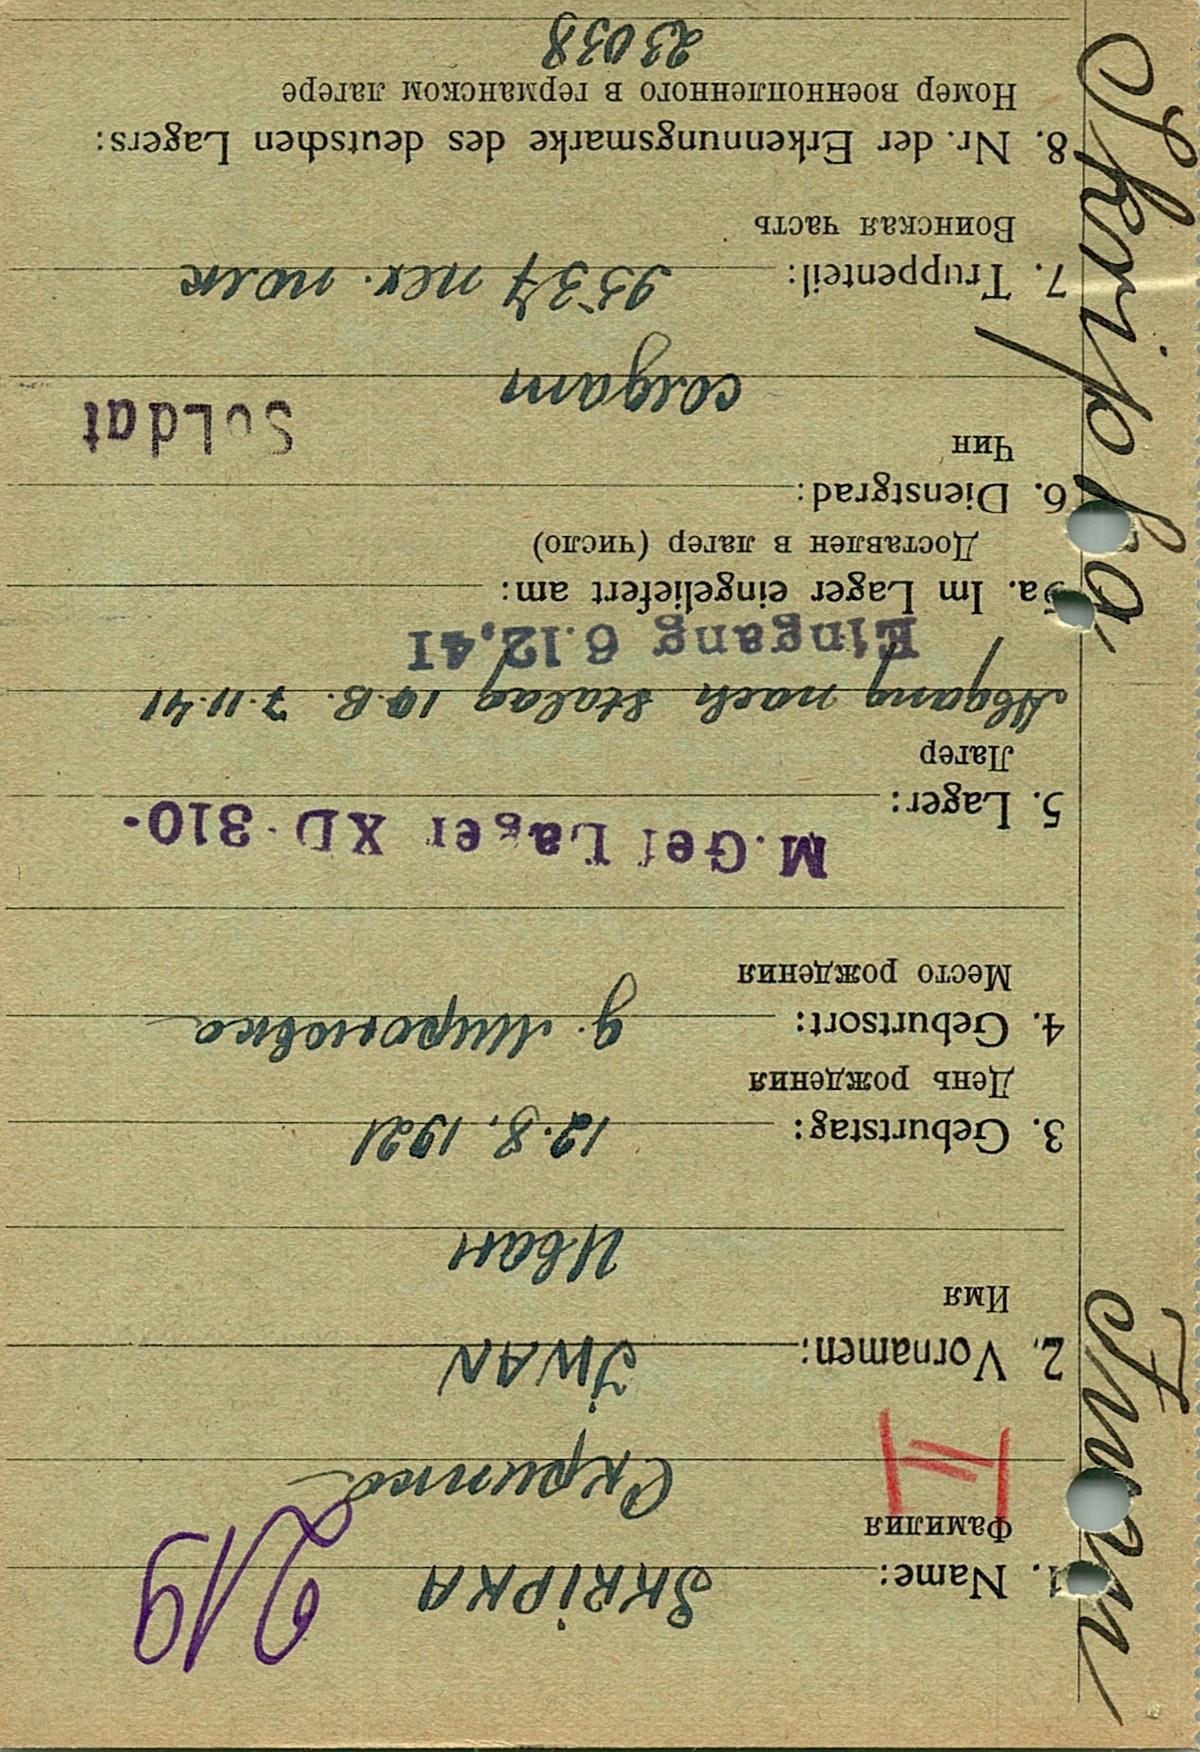 219
1. Name: SKRIPKA
Фамилия Скрипка
2. Vornamen: IWAN
Имя
Иван
3. Geburtstag: 12.8.1921
День рождения
4. Geburtsort: д. Мироновка
Место рождения
M. Gef Lager XD 310.
5. Lager:
Лагер
Abgang nach Stalag 10.B. 7.11.41
Eingang 6.12.41
5a. Im Lager eingeliefert am:
Доставлен в лагер (число)
6. Dienstgrad:
Чин
Soldat
солдат
7. Truppenteil: 9537 пех. полк
Воинская часть
8. Nr. der Erkennungsmarke des deutschen Lagers:
Номер военнопленного в германском лагере
23038
Skripka Iwan